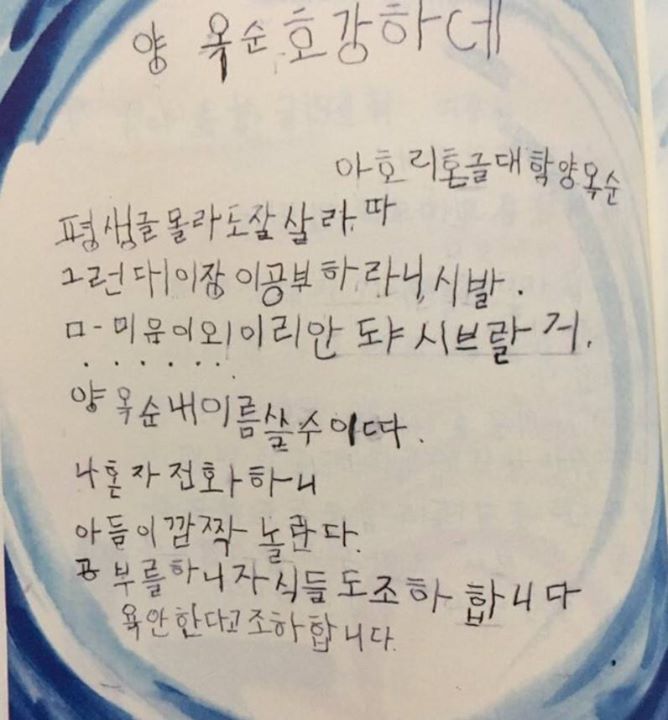 양 옥순 호강하네
아호리 혼글대학 양옥순
평생글몰라도잘살라따
그런대 이장이공부하라니, 시발.
ㅁ-미유이외이리안 도냐 시브랄거.
......
양옥순내이름쓸수이따.
나혼자전화하니
아들이깜짝놀란다.
공부를하니자식들도조하합니다
욕안한다고조하합니다.